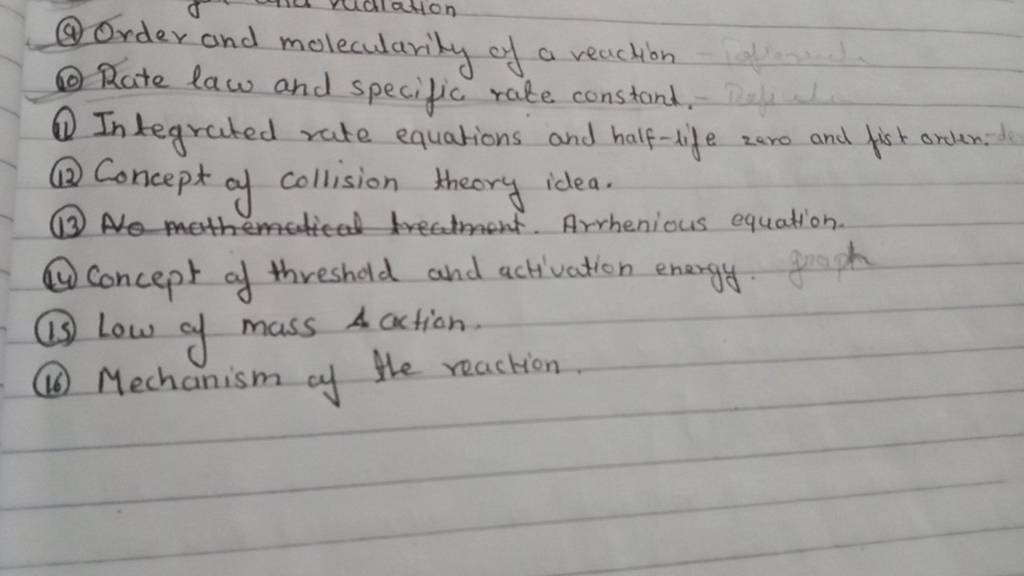 and radiation
⑨ Order and molecularity of a reaction -
⑩ Rate law and specific rate constant. -
⑪ Integrated rate equations and half-life zero and fist order.
⑫ Concept of collision theory idea.
⑬ No mathematical treatment. Arrhenious equation.
⑭ Concept of threshold and activation energy. graph
⑮ Low of mass action.
⑯ Mechanism of the reaction.